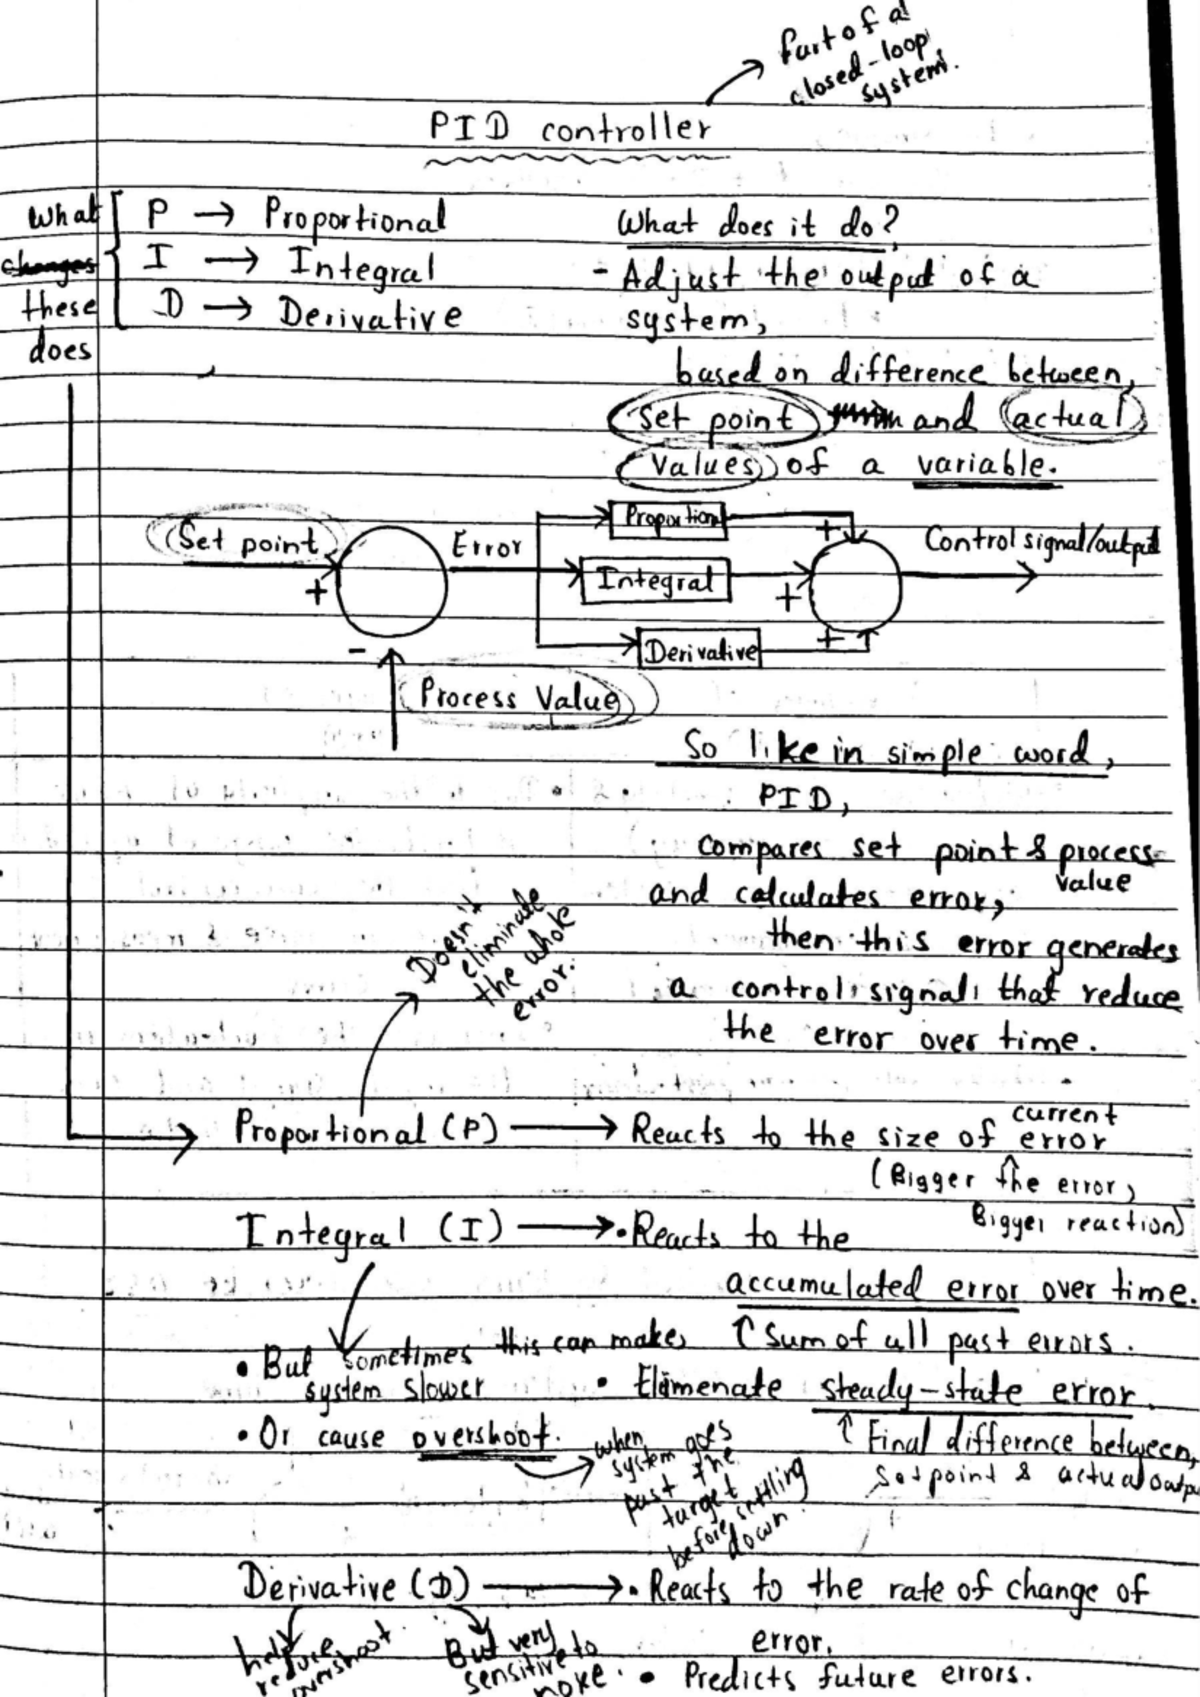 Part of a
closed-loop
system.
PID controller
What
changes
these
does
P → Proportional
I → Integral
D → Derivative
What does it do?
- Adjust the output of a
system,
based on difference between,
set point and actual
values of a variable.
Set point
+
-
Error
Proportional
Integral
Derivative
+
+
+
Control signal/output
Process Value
So like in simple word,
PID,
compares set point & process
value
and calculates error,
then this error generates
a control signal that reduce
the error over time.
Doesn't
eliminate
the whole
error.
Proportional (P) → Reacts to the size of current error
(Bigger the error,
Bigger reaction)
Integral (I) → • Reacts to the
accumulated error over time.
↑ Sum of all past errors.
• But sometimes this can make
system slower
• Or cause overshoot.
when
system goes
past the
target
before settling
down.
• Elimenate steady-state error.
↑ Final difference between,
setpoint & actual output
Derivative (D) → • Reacts to the rate of change of
error.
help
reduce
overshoot.
But very
sensitive to
noise.
• Predicts future errors.